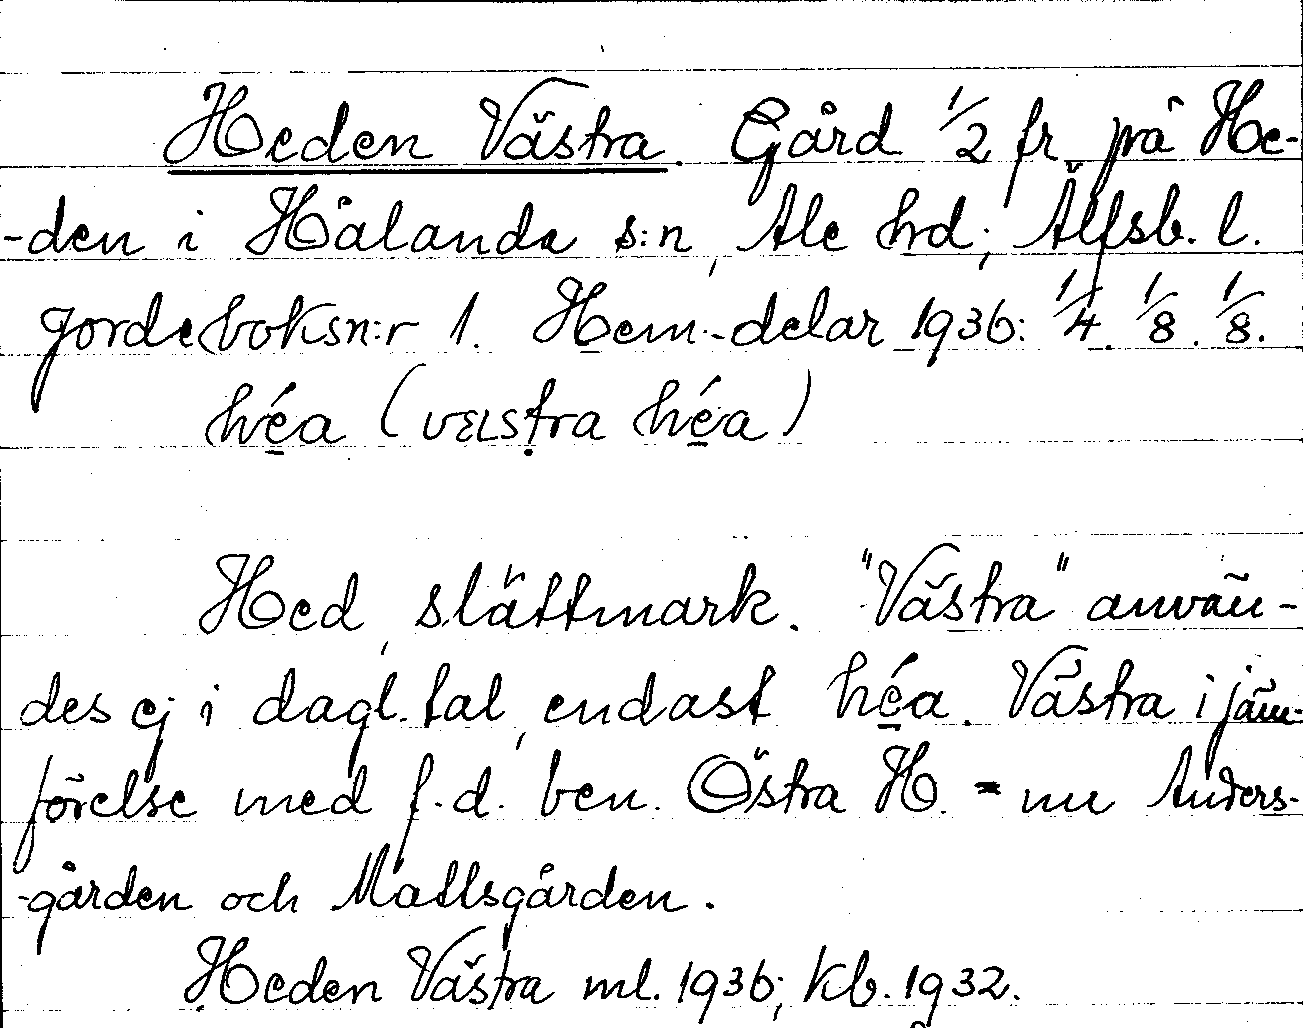 Heden Västra. Gård 1/2 fr på He-
-den i Hålanda s:n, Ale hrd; Älfsb. l.
Jordeboksn:r 1. Hem.-delar 1936: 1/4. 1/8. 1/8.
héa (vɛɩstra héa)
Hed, slättmark. "Västra" använ-
des ej i dagl. tal, endast héa. Västra i jäm-
förelse med f.d. ben. Östra H. = nu Anders-
-gården och Mattsgården.
Heden Västra ml. 1936; Kb. 1932.